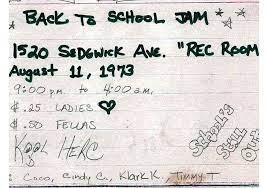 BACK TO SCHOOL JAM
1520 SEDGWICK AVE. "REC ROOM
August 11, 1973
9:00 p.m. to 4:00 a.m.
$.25 LADIES ♡
$.50 FELLAS
KOOL HERC
School's
Still
Out!
: Coco, Cindy C., Klark K. Timmy T